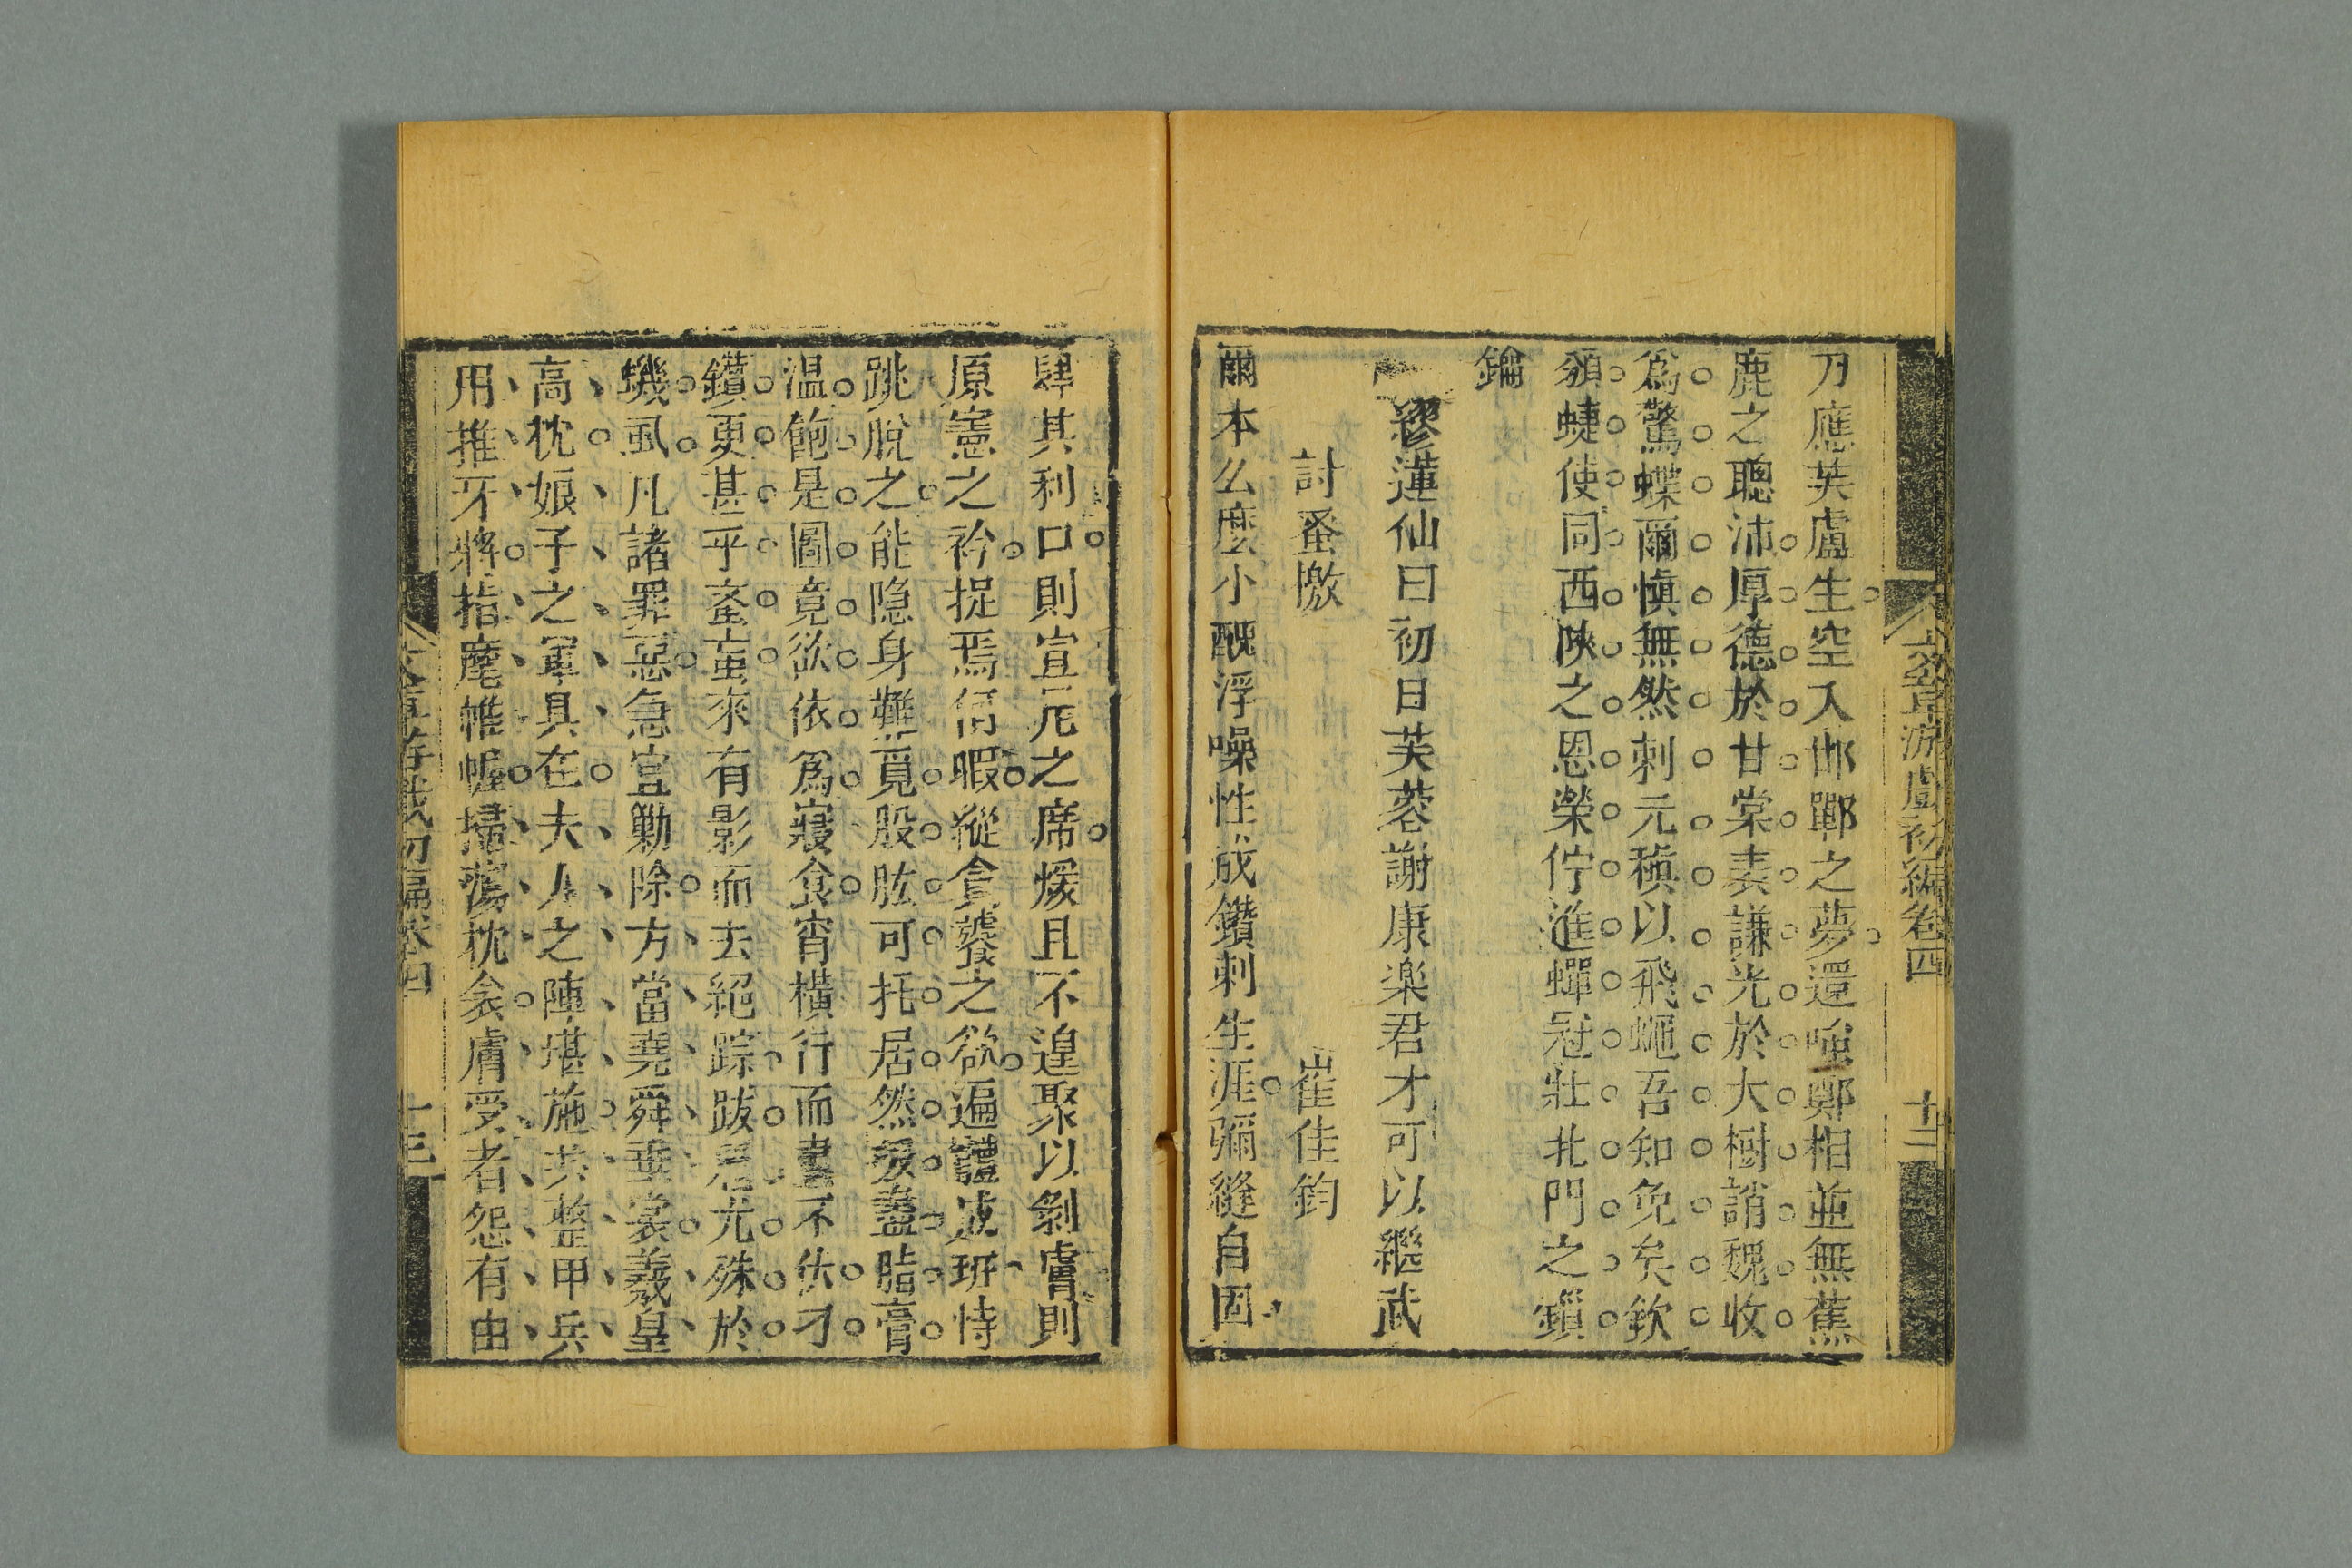 文章游戲初編卷四 十二
乃應英盧生空入邯鄲之夢還嗤鄭相並無蕉
鹿之聰沛厚德於甘棠表謙光於大樹誚魏收
爲驚蝶爾慎無然刺元稹以飛蠅吾知免矣欽
頒蜨使同西陝之恩榮佇進蟬冠壯北門之鎖
鑰
繆蓮仙曰初日芙蓉謝康樂君才可以繼武
討蚤檄 崔佳鈞
爾本么麼小醜浮噪性成鑽刺生涯彌縫自固
肆其利口則宣尼之席煖且不遑聚以剝膚則
原憲之衿捉焉何暇縱貪饕之欲遍體成斑恃
跳脫之能隐身難覓股肱可托居然吸盡脂膏
温飽是圖竟欲依爲寢食宵橫行而晝不伏刁
鑽更甚乎蚉䖟來有影而去絕踪跋扈尤殊於
蟣虱凡諸罪惡急宜勦除方當堯舜垂裳羲皇
高枕娘子之軍具在夫人之陣堪施共整甲兵
用推牙將指麾帷幄掃蕩枕衾膚受者怨有由
文章游戲初編卷四 十三